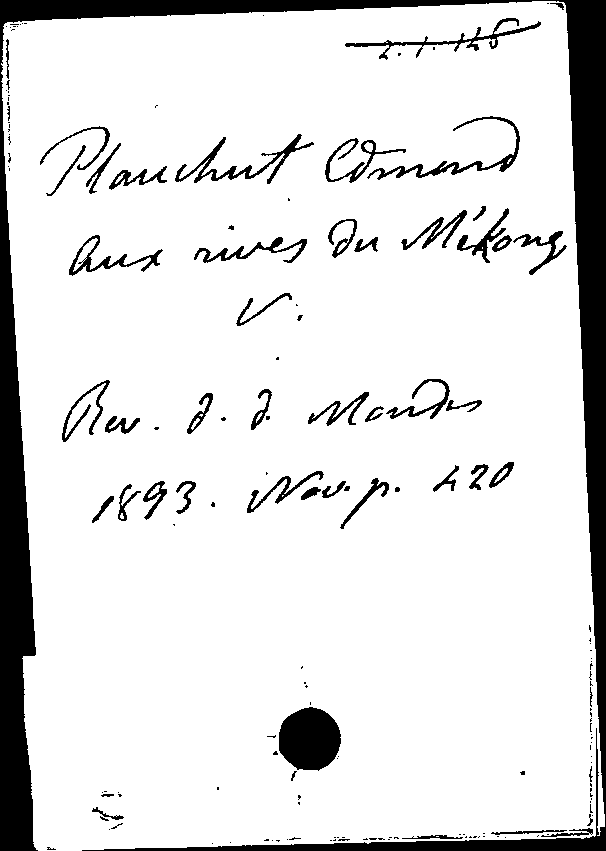 2.1.126
Plauchut Edmond
Aux rives du Mékong
V.
Rev. d. d. Mondes
1893. Nov. p. 420